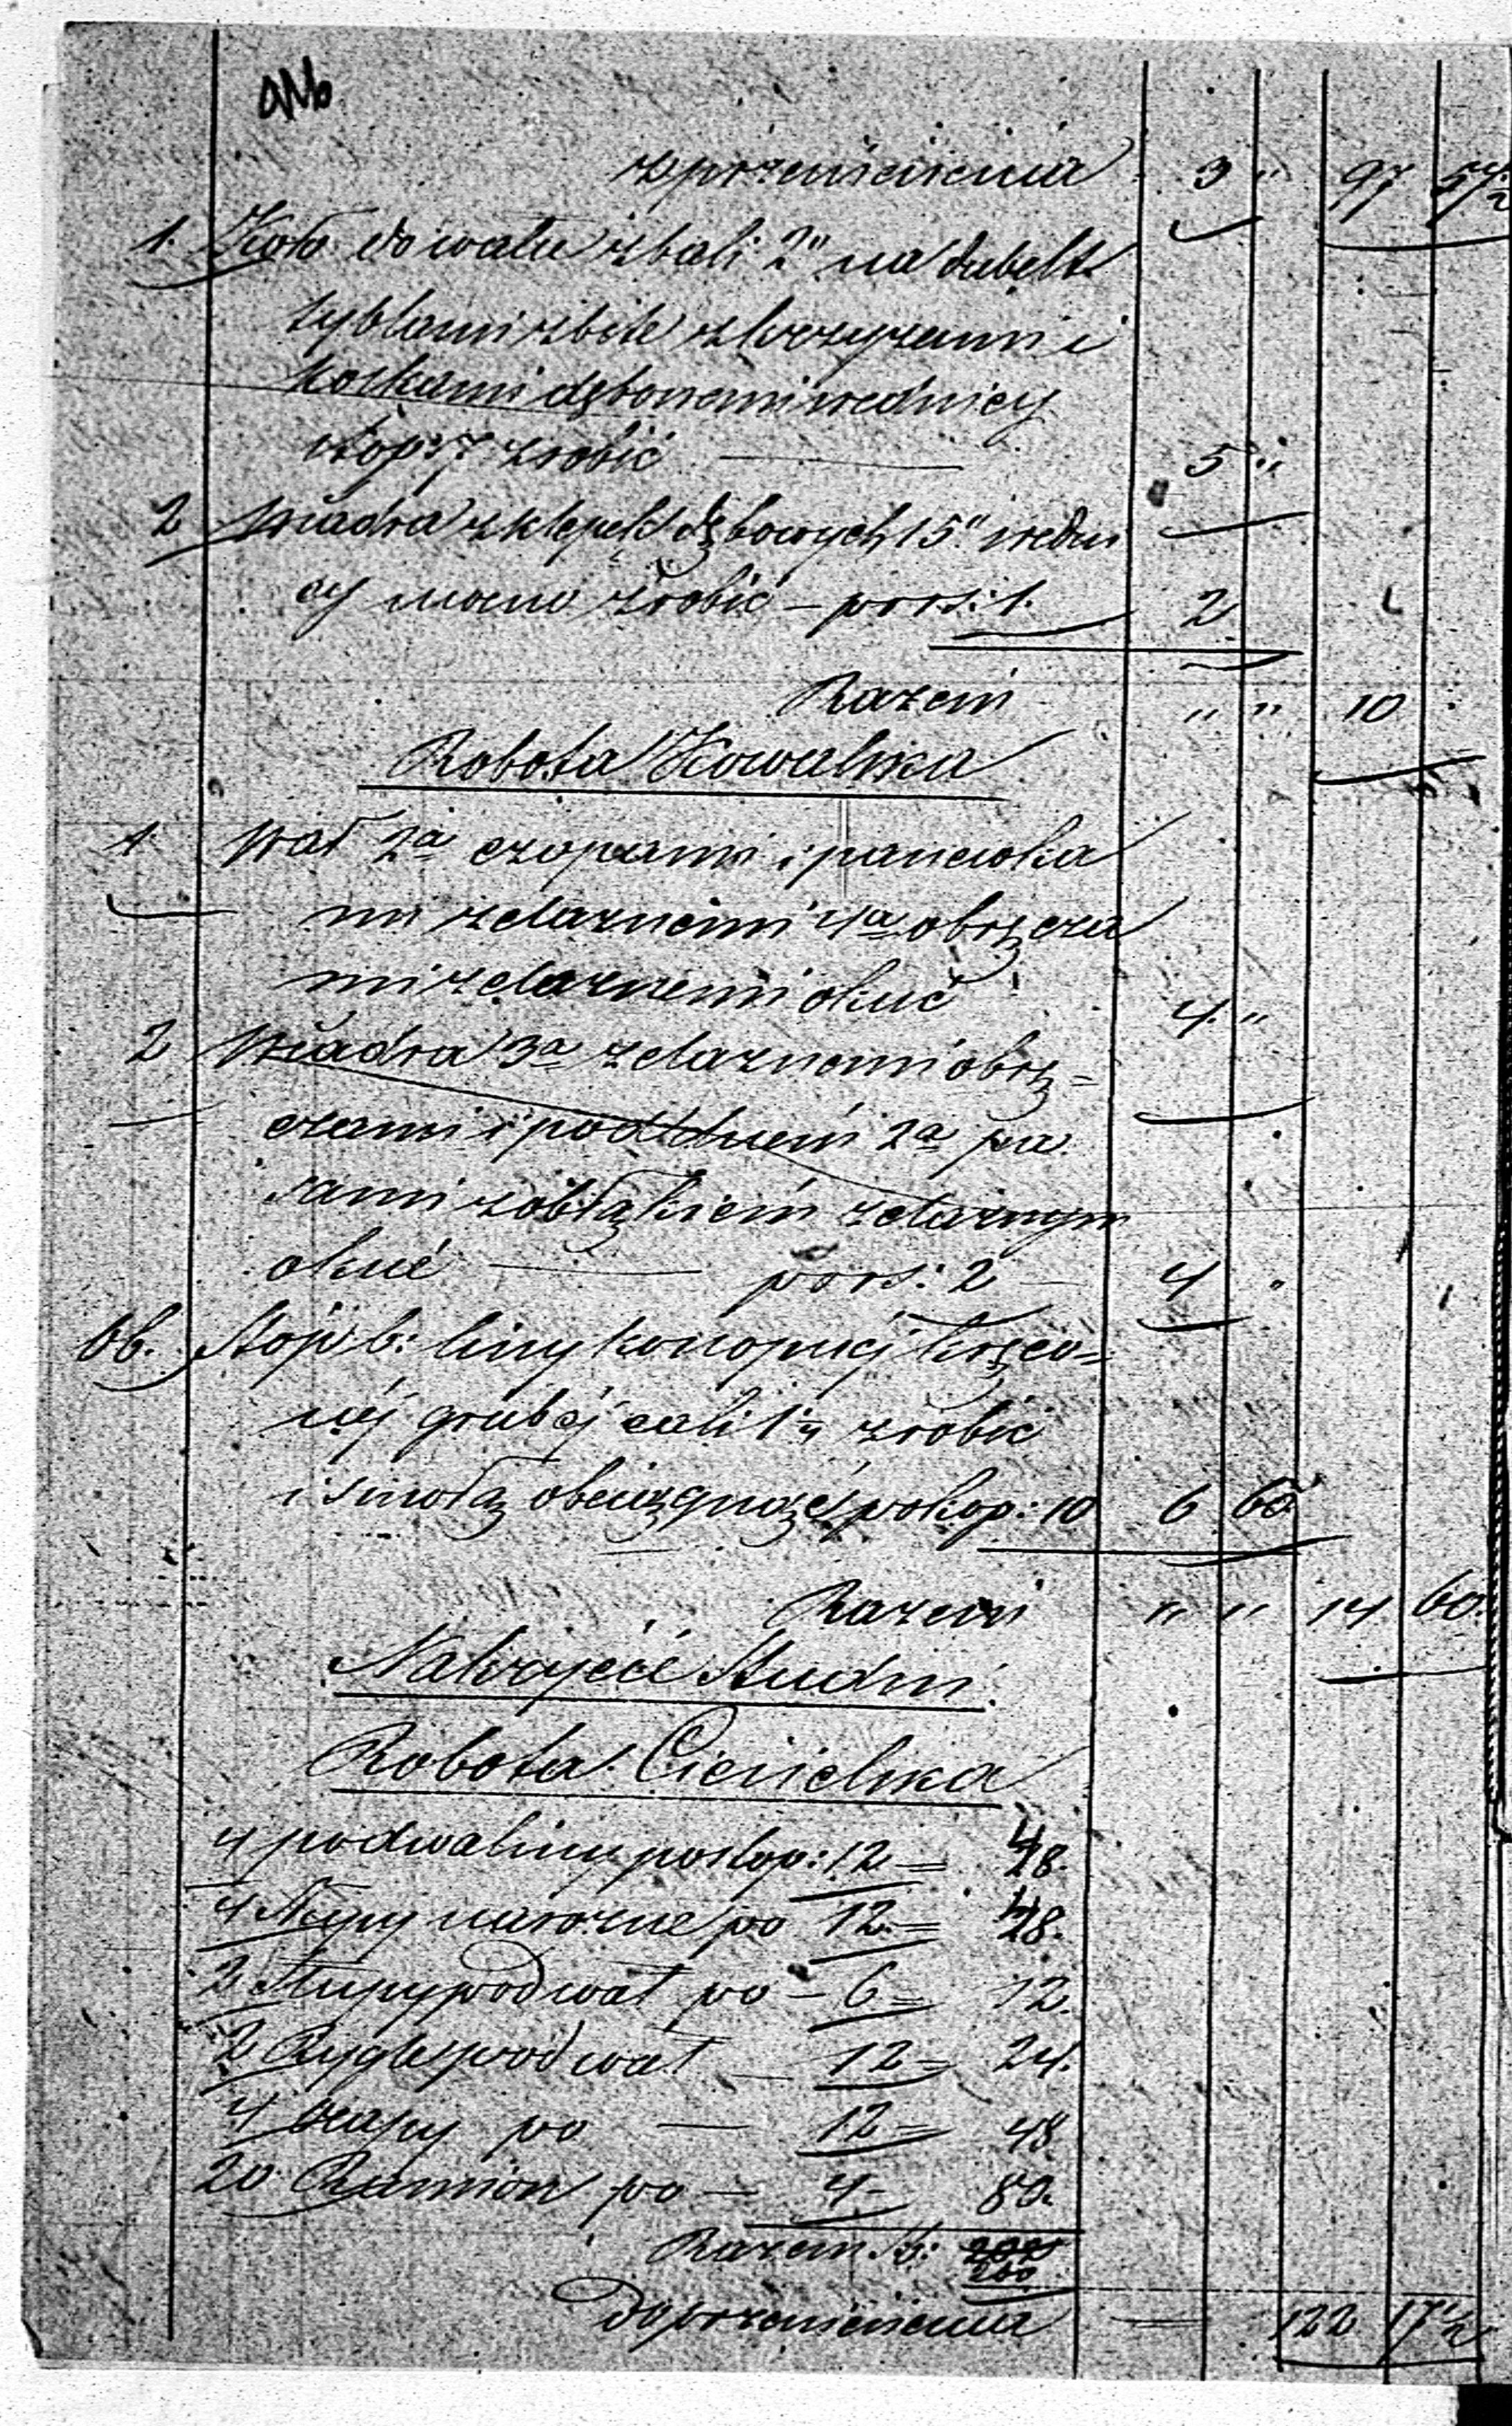 z przeniesienia 3 " 97 57½
1. Koło do wału z bali 2" na dubelt
tyblami zbite z krzyżami i
kołkami dębonemi srednicy
stop: 7 zrobić — 5 "
2 Wiadra z klepek dębowych 15" sredni
cy mocno zrobić – po rs: 1. 2
Razem " " 10
Robota Kowalska
1 Wał 2a czopami i panewka
mi żelaznemi 4a obręcza
mi żelaznemi okuć 4. "
2 Wiadra 3a żelaznemi obrę=
czami i pod dnem 2a pa
sami z obłąkiem żelaznym
okuć — po rs: 2 — 4 "
66. Stop b: liny konopnej kręco=
nej grubej cali 1½ zrobić
i smołą obciągnąć po kop: 10 6 60
Razem " " 14 60.
Nakrycie Studni.
Robota Ciesielska
4 podwaliny po stop: 12 = 48.
4 Słupy narożne po 12. = 48.
2 Słupy pod wał po – 6 = 12.
2 Rygle pod wał — 12 = 24.
4 po — 12 = 48
20 Ramion po — 4 – 80.
Razem St: 260
Do przeniesienia — 122 17½